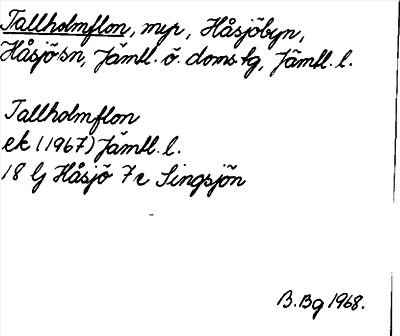 Tallholmflon, myr, Håsjöbyn,
Håsjö sn, Jämtl. ö. doms. tg, Jämtl. l.
Tallholmflon
ek (1967) Jämtl. l.
18 G Håsjö 7 c Singsjön
B. Bg 1968.